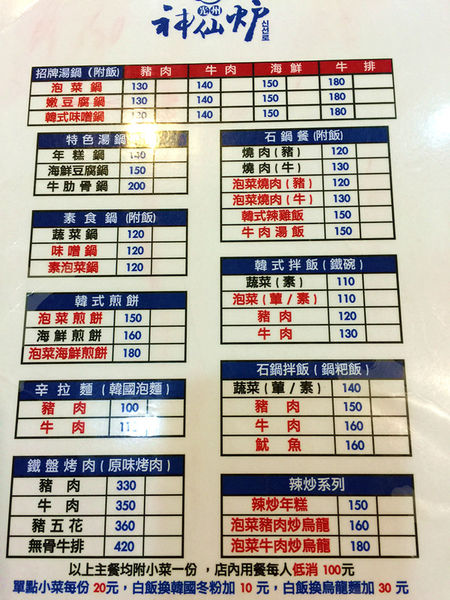 光州
神仙炉
신선로
招牌湯鍋(附飯) 豬肉 牛肉 海鮮 牛排
泡菜鍋 130 140 150 180
嫩豆腐鍋 130 140 150 180
韓式味噌鍋 120 140 150 180
特色湯鍋
年糕鍋 140
海鮮豆腐鍋 150
牛肋骨鍋 200
素食鍋(附飯)
蔬菜鍋 120
味噌鍋 120
素泡菜鍋 120
韓式煎餅
泡菜煎餅 150
海鮮煎餅 160
泡菜海鮮煎餅 180
辛拉麵(韓國泡麵)
豬肉 100
牛肉
鐵盤烤肉(原味烤肉)
豬肉 330
牛肉 350
豬五花 360
無骨牛排 420
石鍋餐(附飯)
燒肉(豬) 120
燒肉(牛) 130
泡菜燒肉(豬) 120
泡菜燒肉(牛) 130
韓式辣雞飯 150
牛肉湯飯 150
韓式拌飯(鐵碗)
蔬菜(素) 110
泡菜(葷/素) 110
豬肉 120
牛肉 130
石鍋拌飯(鍋粑飯)
蔬菜(葷/素) 140
豬肉 150
牛肉 160
魷魚 160
辣炒系列
辣炒年糕 150
泡菜豬肉炒烏龍 160
泡菜牛肉炒烏龍 180
以上主餐均附小菜一份,店內用餐每人低消100元
單點小菜每份20元,白飯換韓國冬粉加10元,白飯換烏龍麵加30元